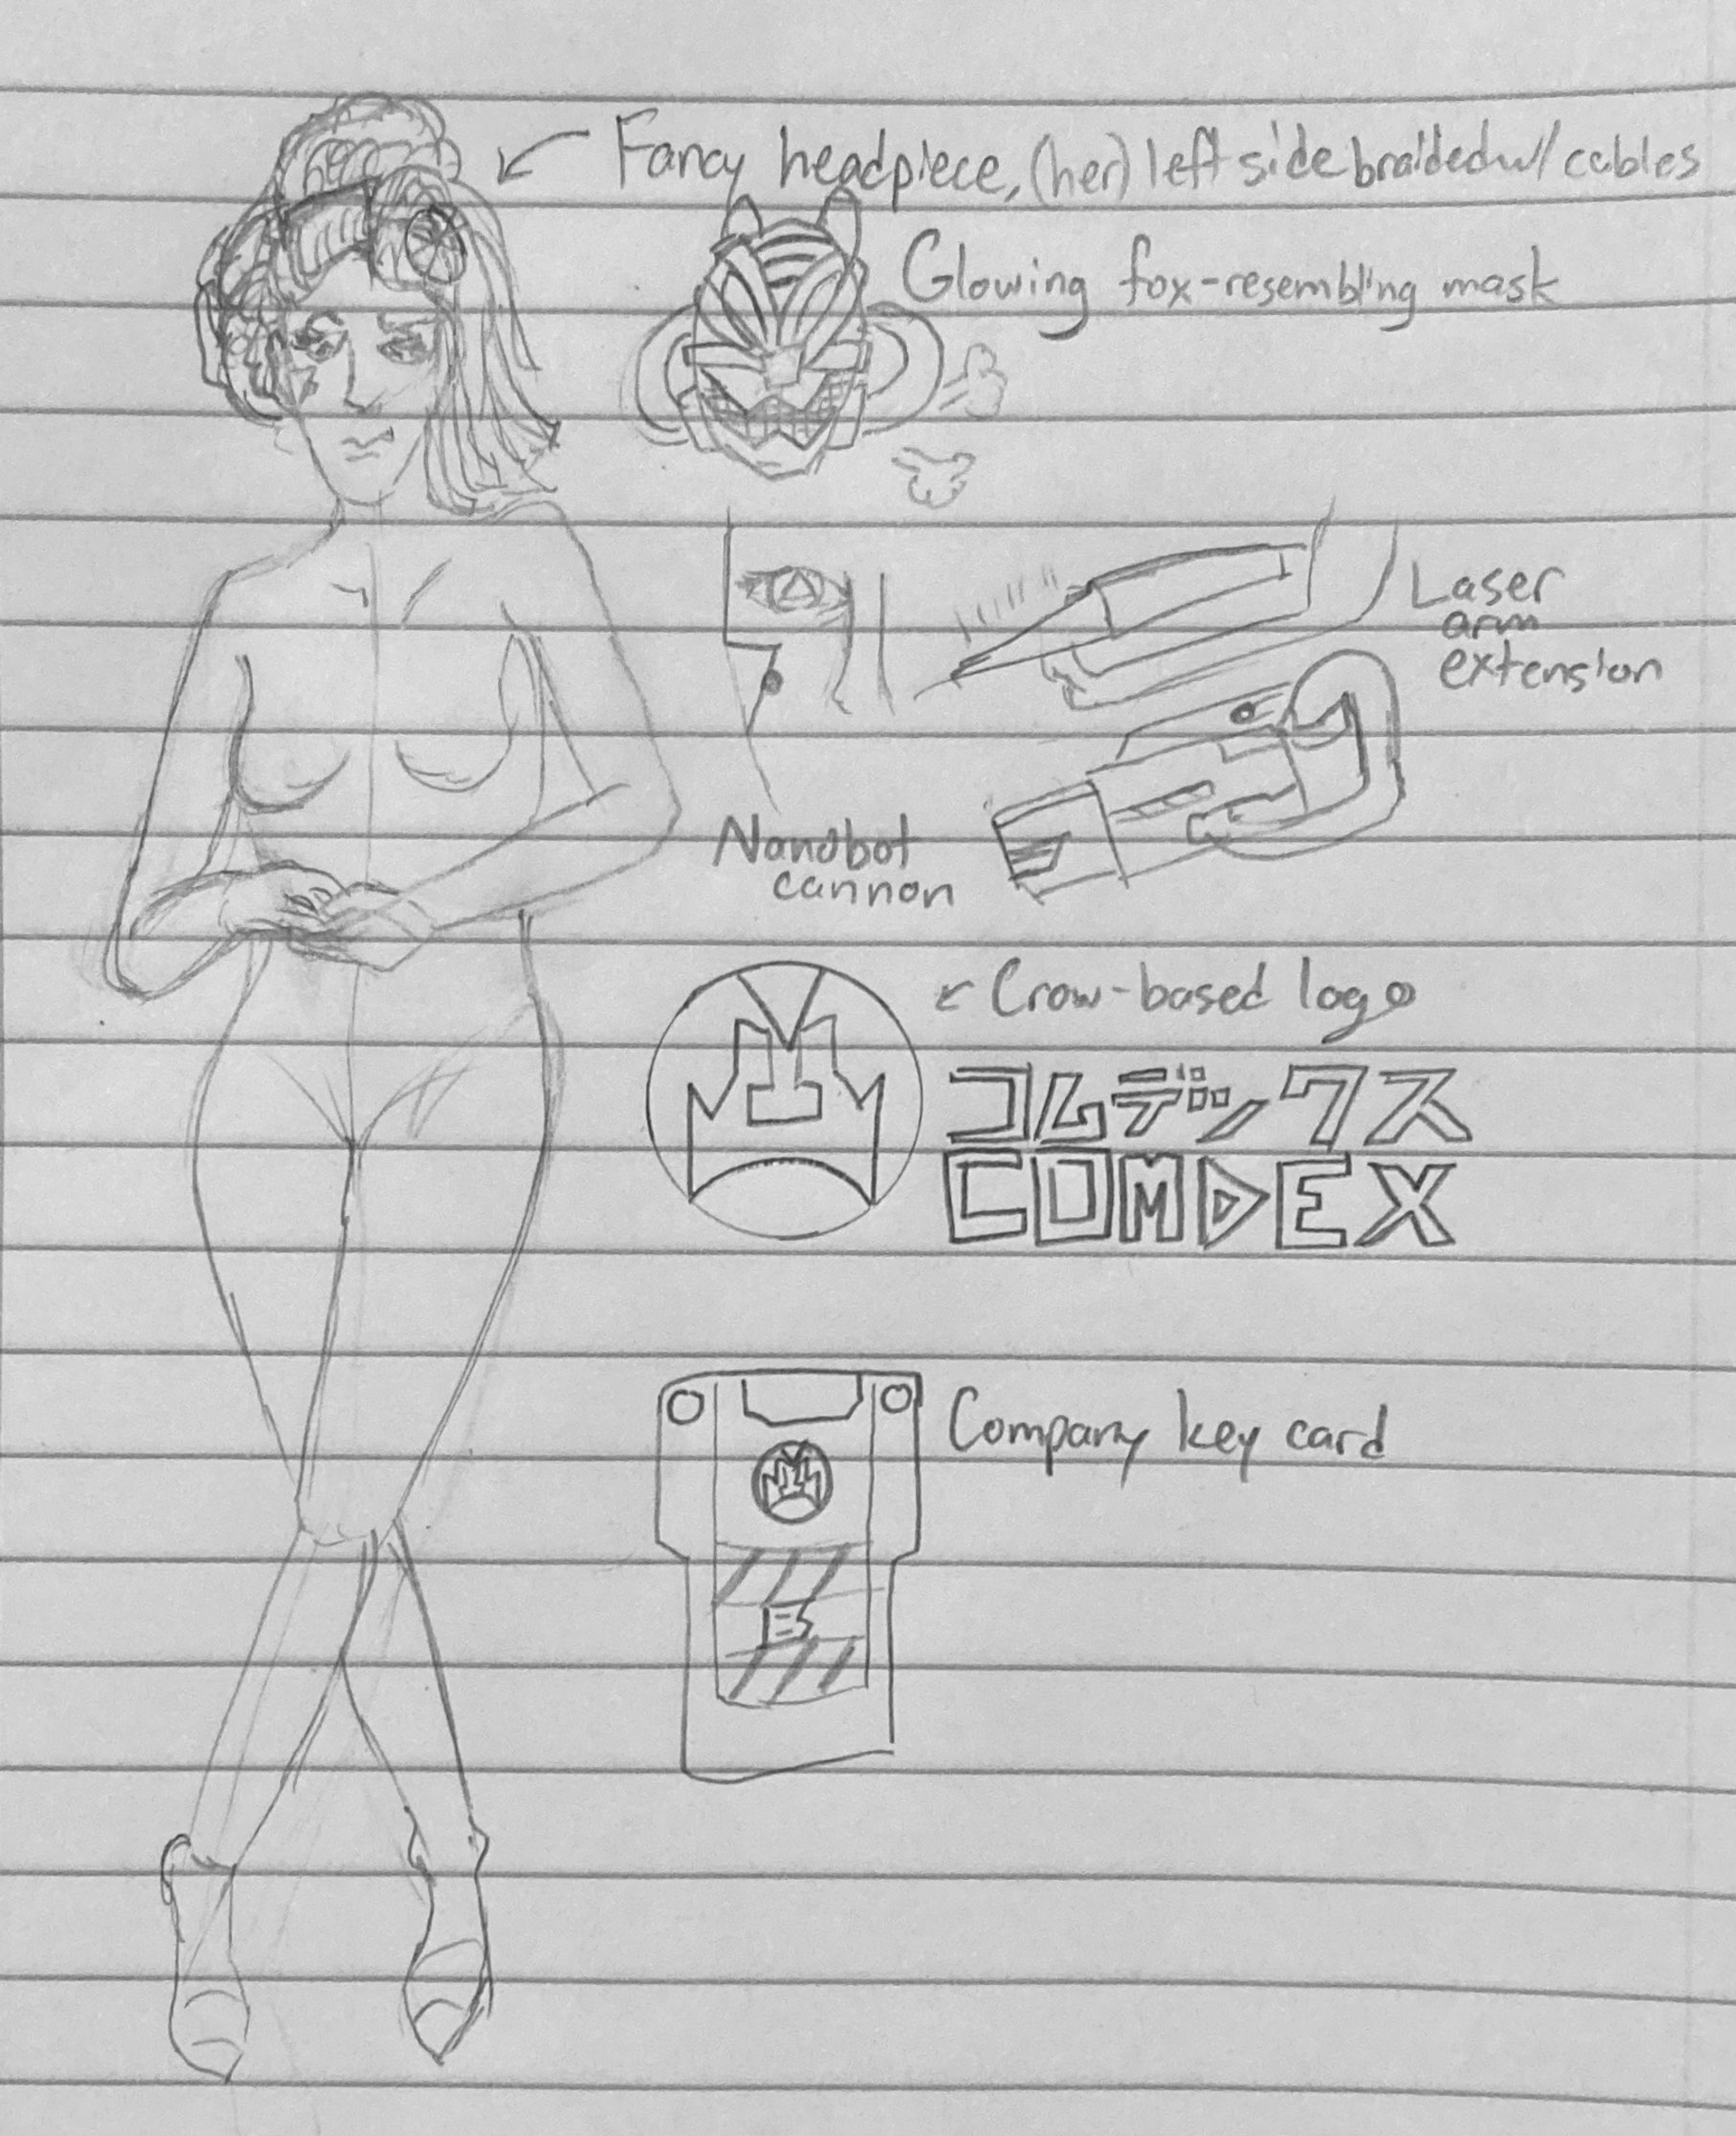 Fancy headpiece, (her) left side braided w/ cables
Glowing fox-resembling mask
Laser
arm
extension
Nanobot
cannon
Crow-based logo
コムデックス
COMDEX
Company key card